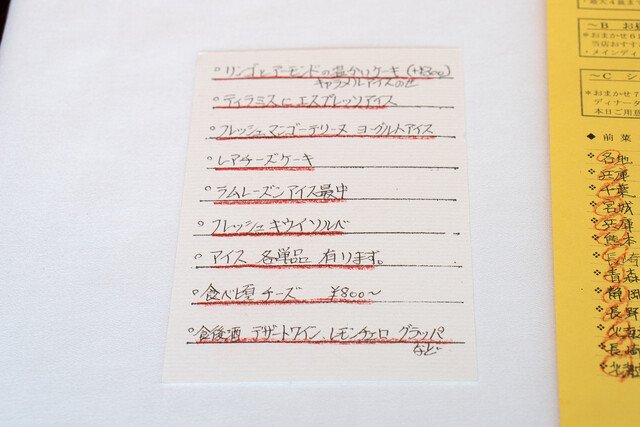 ○ リンゴとアーモンドの温かいケーキ (+¥300)
キャラメルアイスのせ
○ ティラミスにエスプレッソアイス
○ フレッシュマンゴーテリーヌ ヨーグルトアイス
○ レアチーズケーキ
○ ラムレーズンアイス最中
○ フレッシュキウイソルベ
○ アイス 各単品 有ります。
○ 食べ頃 チーズ ¥800〜
○ 食後酒 デザートワイン、レモンチェロ グラッパ
など
〜B お
※おまかせ6
当店おすす
・メインディ
〜C シ
※おまかせ7
ディナータ
本日ご用意
◆前菜
❖各地
❖兵庫
❖千葉
❖宮城
❖兵庫
❖熊本
❖長崎
❖青森
❖静岡
❖長野
❖北海
❖長崎
❖北海